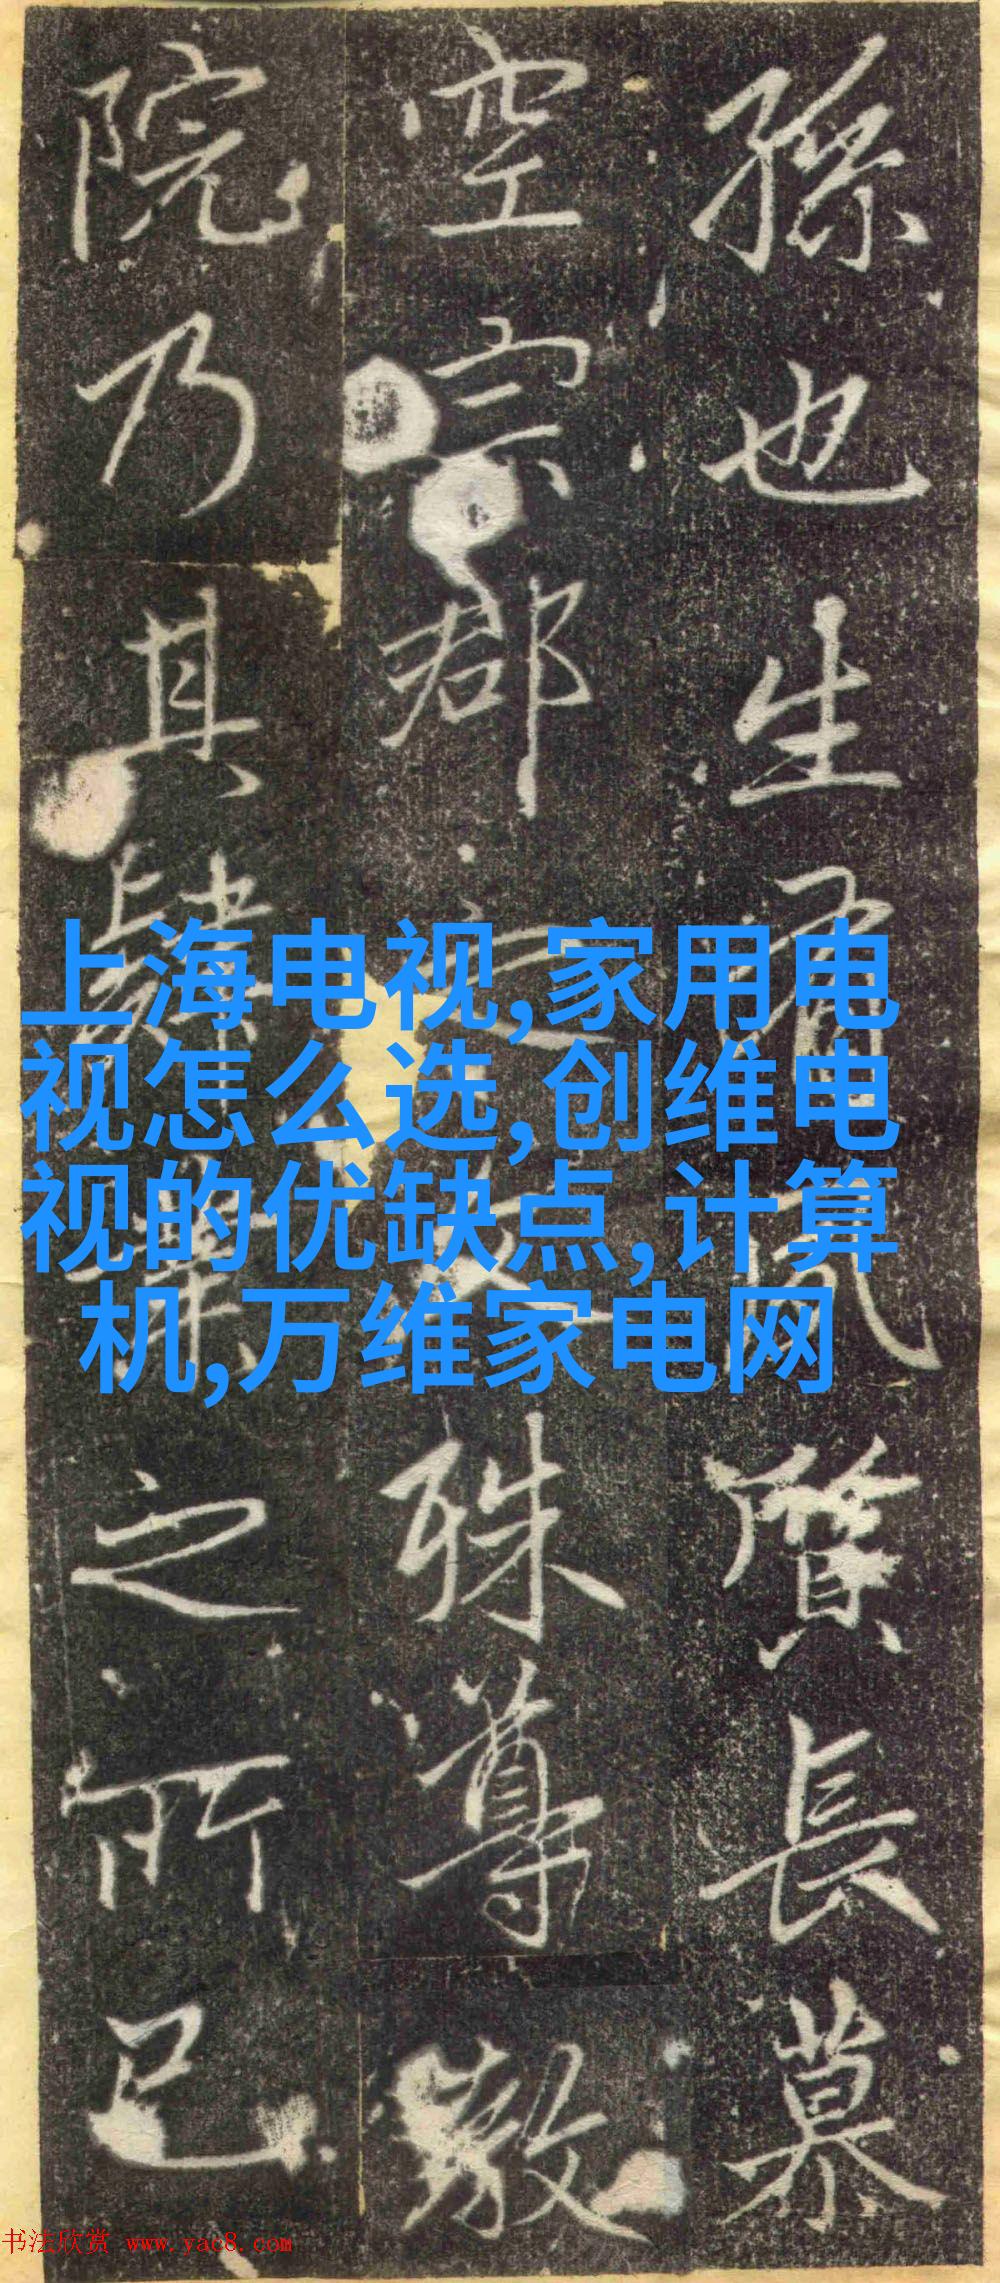 孫也生有風質長慕
空宗郡之文殊尊
院乃其肄業之所已
上海电视,家用电
视怎么选,创维电
视的优缺点,计算
机,万维家电网
书法欣赏 www.yac8.com